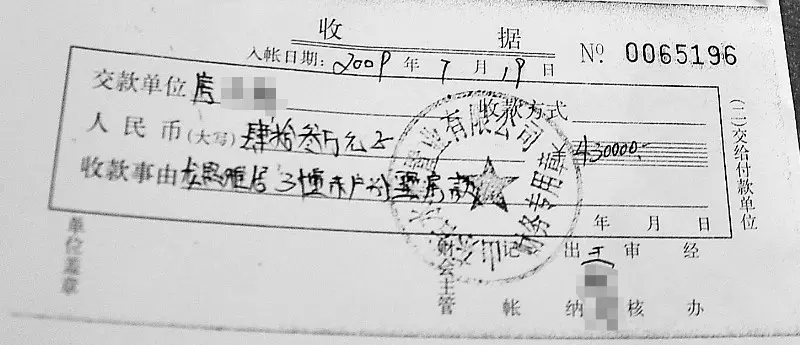 收 据
№ 0065196
入帐日期: 2009 年 7 月 19 日
交款单位 房
收款方式
人民币(大写) 肆拾叁万元正
430000.-
收款事由 龙 雅居 3幢 房款
年 月 日
(二)交给付款单位
单位盖章
财会主管
记帐
出纳 王
审核
经办
置业有限公司
财务专用章